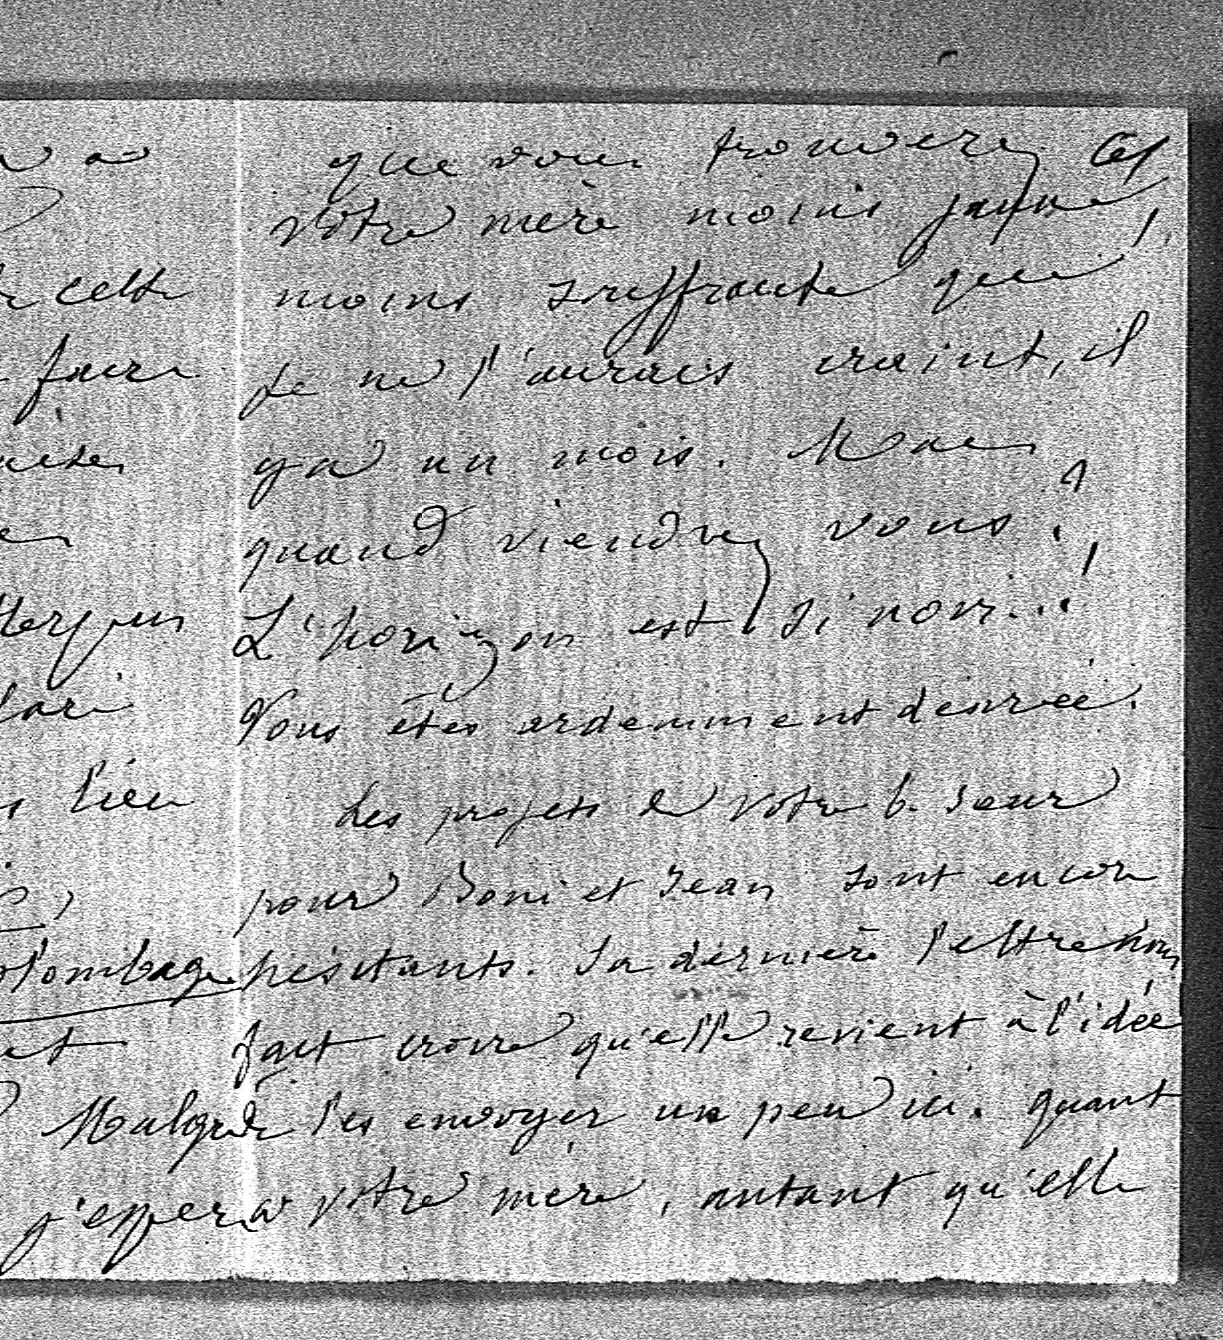 que vous trouverez
votre mère moins jaune,
moins souffrante que
je ne l'aurais craint, il
y a un mois. Mais
quand viendrez vous ?
L'horizon est si noir..!
Vous êtes ardemment désirée.
Les projets de votre b. soeur
pour Boni et Jean sont encore
hésitants. Sa dernière lettre nous
fait croire qu'elle revient à l'idée
de les envoyer un peu ici. quant
à votre mère, autant qu'elle
cette
faire
lieu
et
Malgré
j'espère